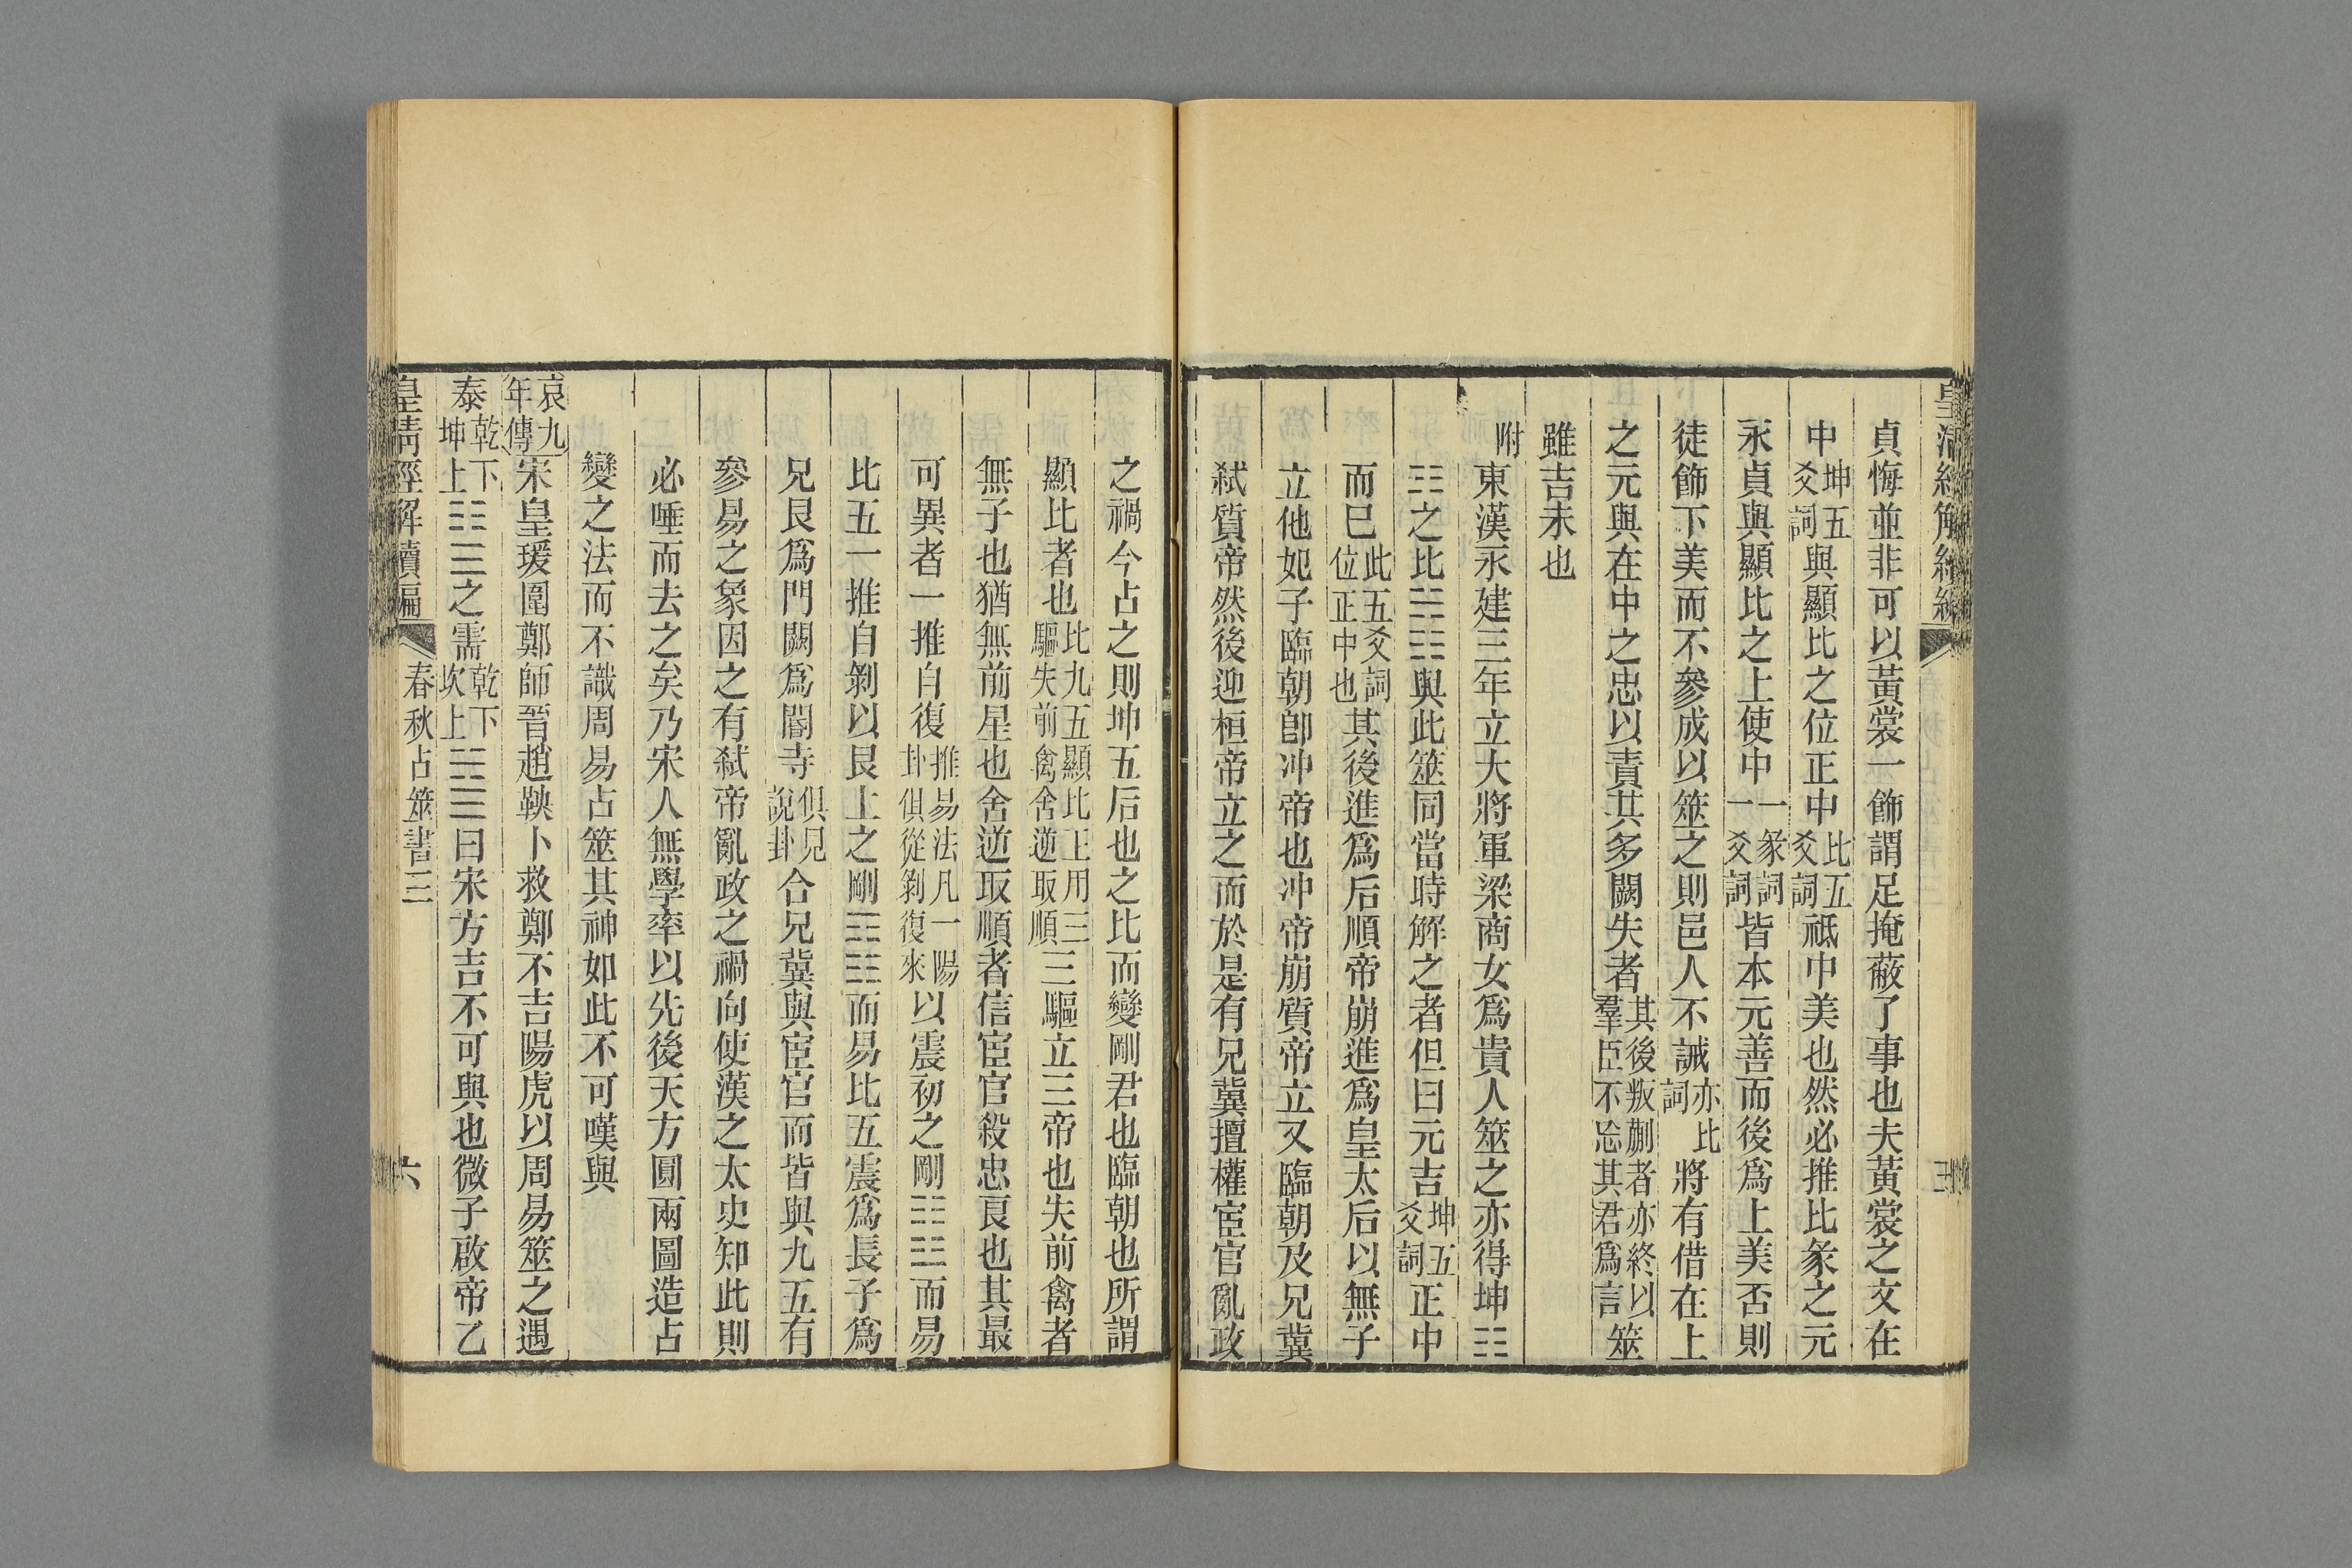 貞悔並非可以黃裳一飾謂足掩蔽了事也夫黃裳之文在
中坤五爻詞與顯比之位正中比五爻詞祗中美也然必推比彖之元
永貞與顯比之上使中一一彖詞爻詞皆本元善而後爲上美否則
徒飾下美而不參成以筮之則邑人不誡亦比詞將有借在上
之元與在中之忠以責其多闕失者其後叛蒯者亦終以羣臣不忘其君爲言筮
雖吉未也
附東漢永建三年立大將軍梁商女爲貴人筮之亦得坤☷
☷之比☵☷與此筮同當時解之者但曰元吉坤五爻詞正中
而已此五爻詞位正中也其後進爲后順帝崩進爲皇太后以無子
立他妃子臨朝卽冲帝也冲帝崩質帝立又臨朝及兄冀
弒質帝然後迎桓帝立之而於是有兄冀擅權宦官亂政
之禍今占之則坤五后也之比而變剛君也臨朝也所謂
顯比者也比九五顯比王用三驅失前禽舍逆取順三驅立三帝也失前禽者
無子也猶無前星也舍逆取順者信宦官殺忠良也其最
可異者一推自復推易法凡一陽卦俱從剝復來以震初之剛☷☳而易
比五一推自剝以艮上之剛☶☷而易比五震爲長子爲
兄艮爲門闕爲閽寺俱見說卦合兄冀與宦官而皆與九五有
參易之象因之有弒帝亂政之禍向使漢之太史知此則
必唾而去之矣乃宋人無學率以先後天方圓兩圖造占
變之法而不識周易占筮其神如此不可嘆與
哀九年傳宋皇瑗圍鄭師晉趙鞅卜救鄭不吉陽虎以周易筮之遇
泰乾下坤上☷☰之需乾下坎上☵☰曰宋方吉不可與也微子啟帝乙
皇清經解續編 春秋占筮書三 六